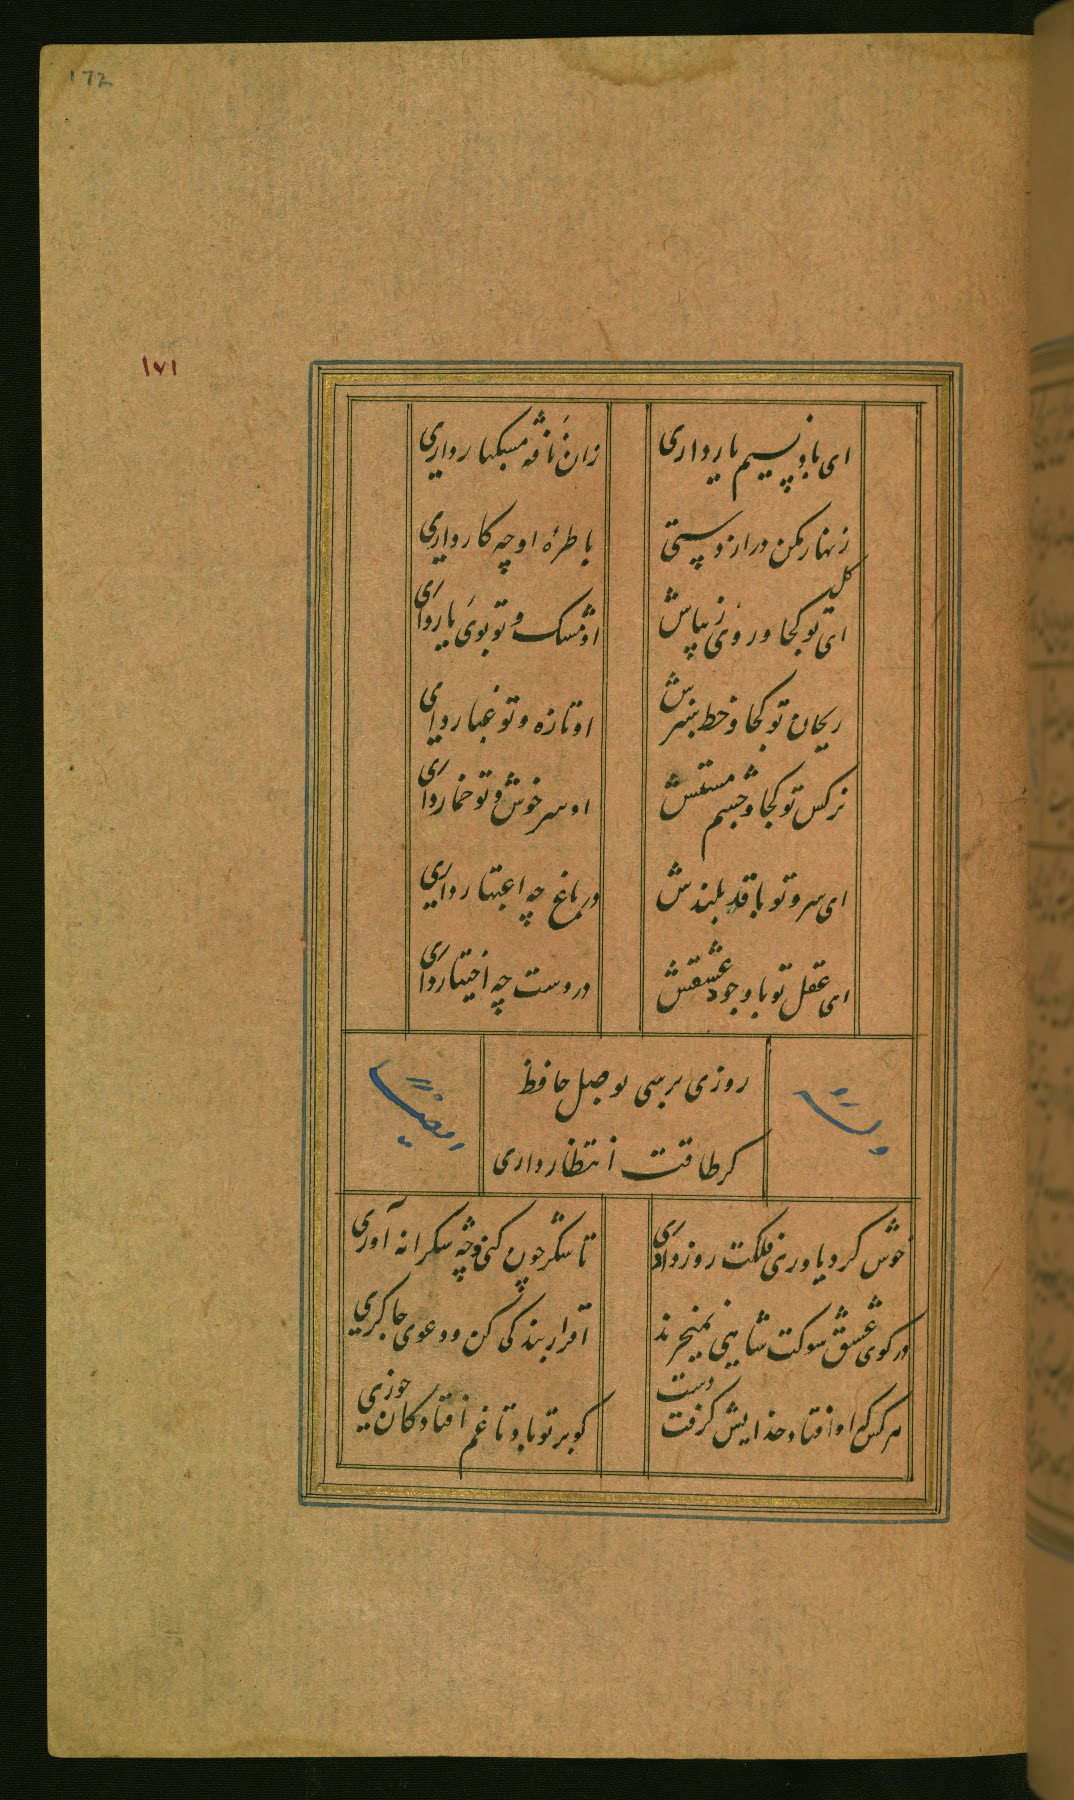 172
١٧١
ای باد نسیم یار داری
زان نافه مشکبار داری
زنهار مکن دراز دستی
با طرهٔ او چه کار داری
ای گل تو کجا و روی زیباش
او مشک و تو بوی یار داری
ریحان تو کجا و خط سبزش
او تازه و تو غبار داری
نرکس تو کجا و چشم مستش
او سر خوش و تو خمار داری
ای سرو تو با قد بلندش
در باغ چه اعتبار داری
ای عقل تو با وجود عشقش
در دست چه اختیار داری
روزی برسی بوصل حافظ
کر طاقت انتظار داری
خوش کرد یاوری فلکت روز داوری
تا شکر چون کنی و چه شکرانه آوری
در کوی عشق شوکت شاهی نمیخرند
اقرار بندکی کن و دعوی چاکری
هر کس که او افتاد خدایش کرفت دست
کو بر تو باد تا غم افتادکان خوری